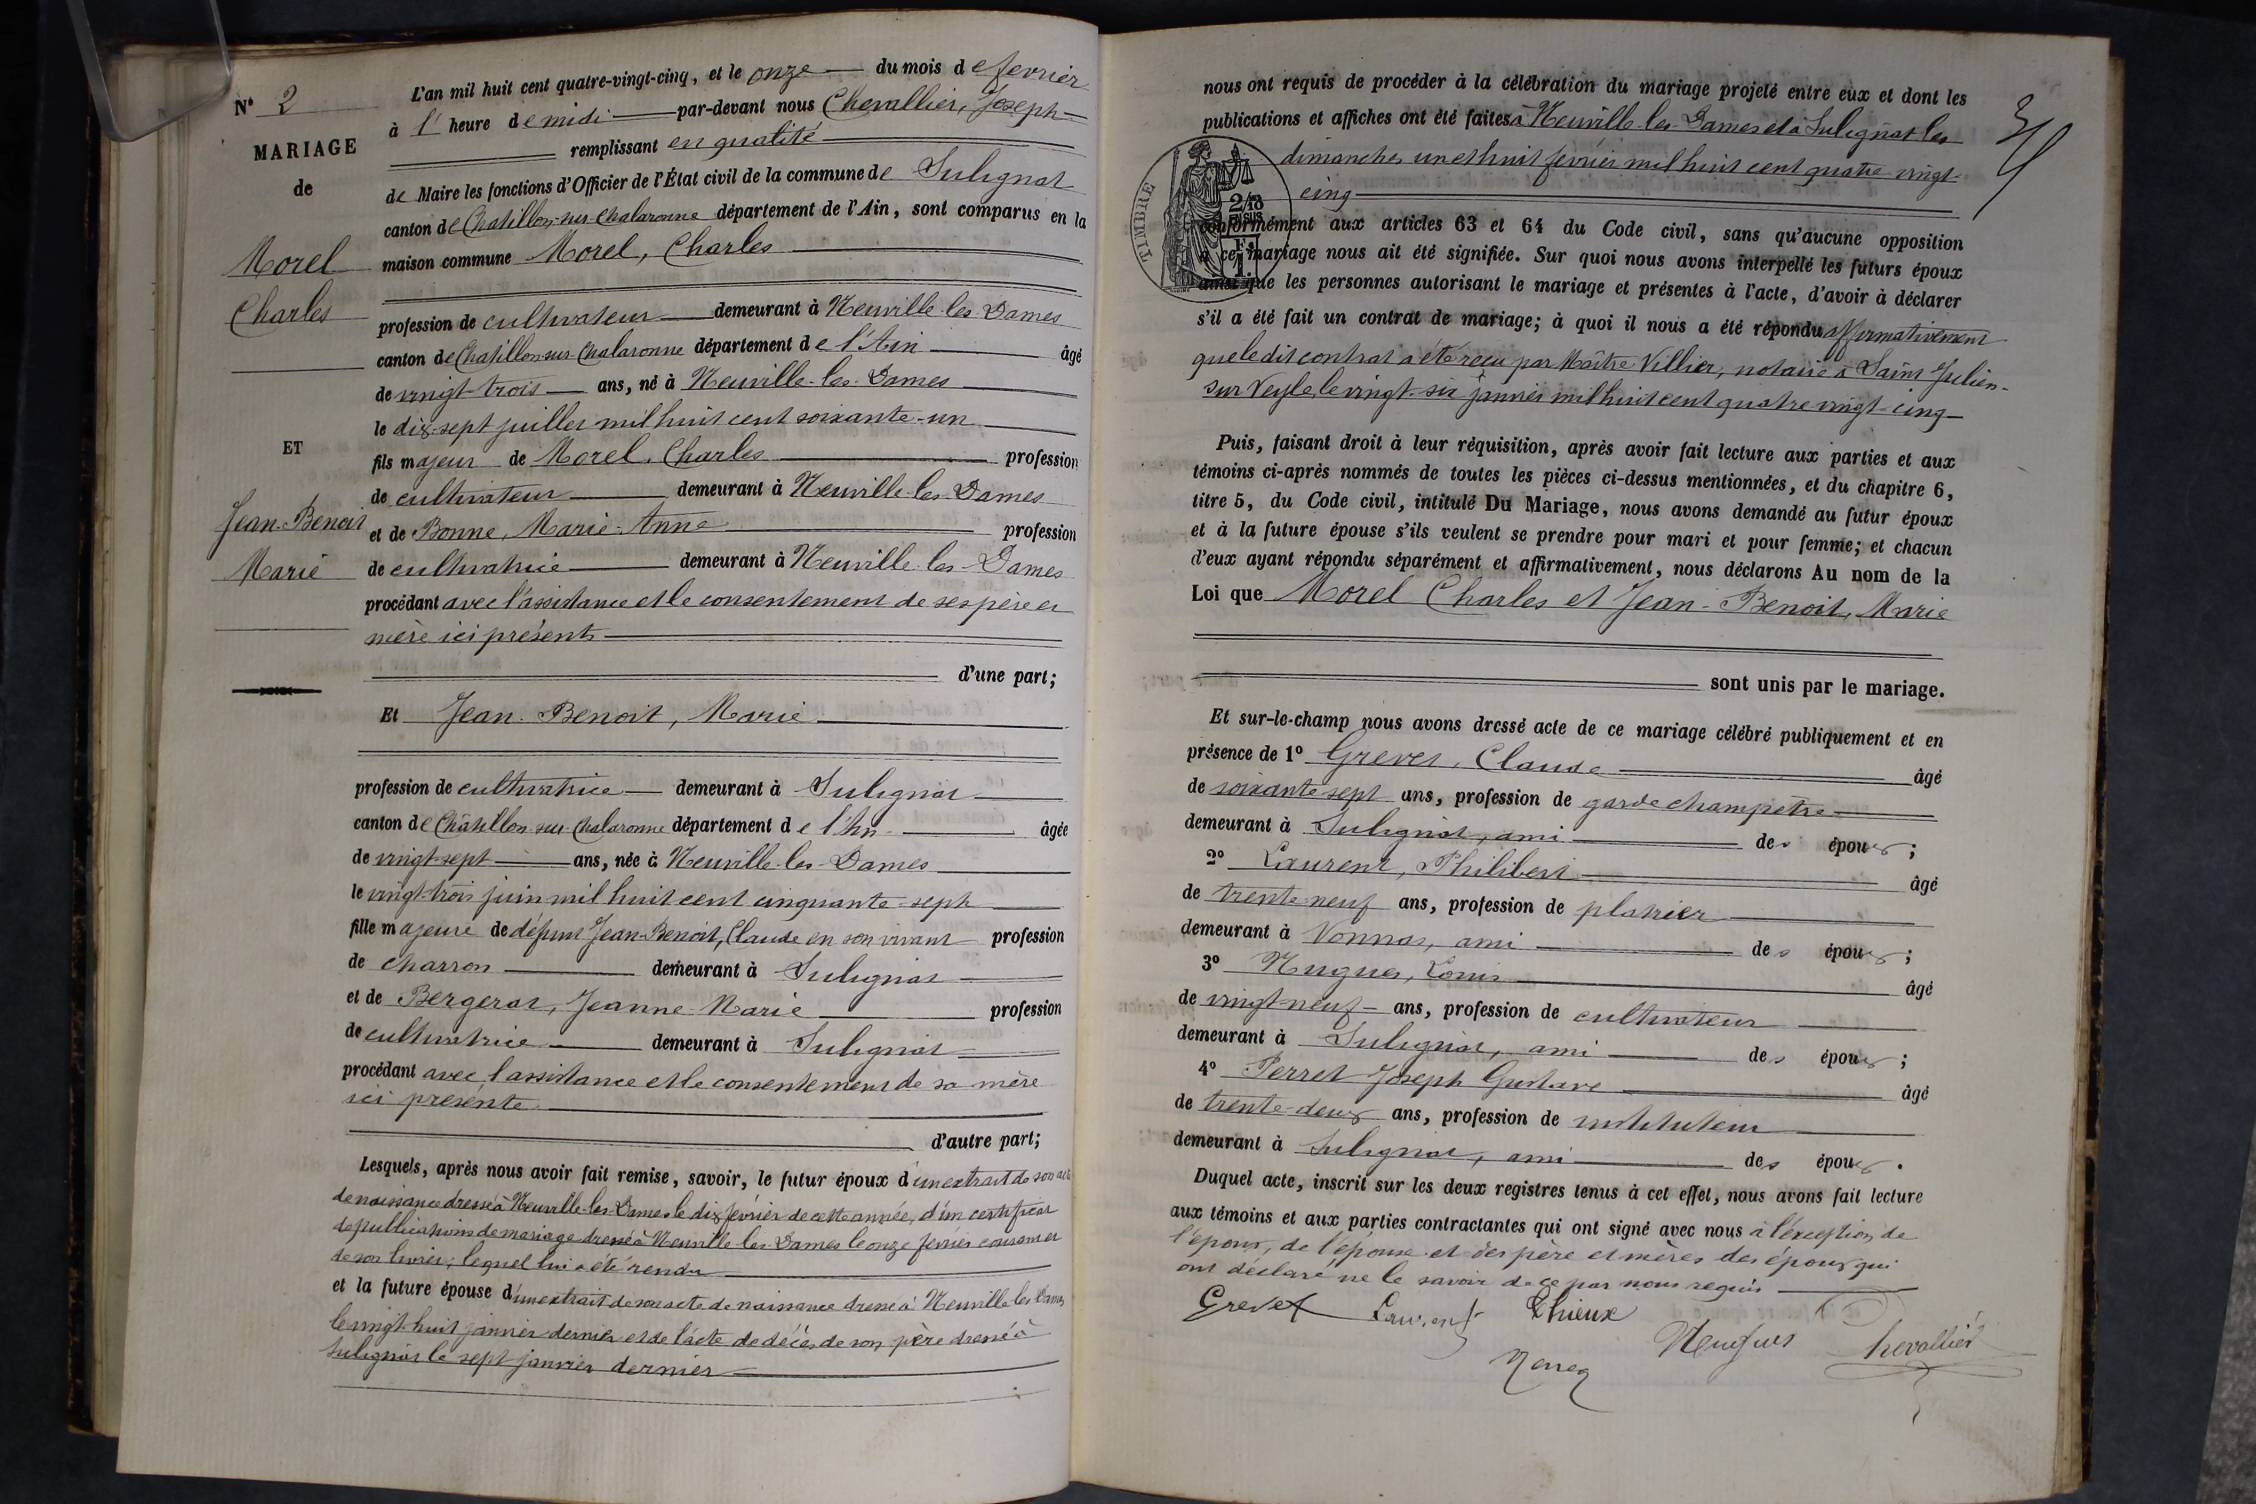 N° 2
MARIAGE
de
Morel
Charles
ET
Jean-Benoit
Marie
L'an mil huit cent quatre-vingt-cinq, et le onze du mois de fevrier
à l' heure de midi par-devant nous Chevallier, Joseph
remplissant en qualité
de Maire les fonctions d'Officier de l'État civil de la commune de Sulignat
canton de Chatillon-sur-Chalaronne département de l'Ain, sont comparus en la
maison commune Morel, Charles
profession de cultivateur demeurant à Neuville-les-Dames
canton de Chatillon-sur-Chalaronne département de l'Ain âgé
de vingt-trois ans, né à Neuville-les-Dames
le dix-sept juillet mil huit cent soixante-un
fils majeur de Morel, Charles profession
de cultivateur demeurant à Neuville-les-Dames
et de Bonne, Marie-Anne profession
de cultivatrice demeurant à Neuville-les-Dames
procédant avec l'assistance et le consentement de ses père et
mère ici présents
d'une part;
Et Jean-Benoit, Marie
profession de cultivatrice demeurant à Sulignat
canton de Châtillon-sur-Chalaronne département de l'Ain âgée
de vingt-sept ans, née à Neuville-les-Dames
le vingt-trois juin mil huit cent cinquante-sept
fille majeure de défunt Jean-Benoit, Claude en son vivant profession
de charron demeurant à Sulignat
et de Bergerat, Jeanne-Marie profession
de cultivatrice demeurant à Sulignat
procédant avec l'assistance et le consentement de sa mère
ici présente
d'autre part;
Lesquels, après nous avoir fait remise, savoir, le futur époux d'un extrait de son acte
de naissance dressé à Neuville-les-Dames le dix février de cette année, d'un certificat
de publications de mariage dressé à Neuville-les-Dames le onze fevrier courant et
de son livret; lequel lui a été rendu
et la future épouse d'un extrait de son acte de naissance dressé à Neuville les Dames
le vingt-huit janvier dernier et de l'acte de décès de son père dressé à
Sulignat le sept janvier dernier
nous ont requis de procéder à la célébration du mariage projeté entre eux et dont les
publications et affiches ont été faites à Neuville-les-Dames et à Sulignat les
dimanches un et huit fevrier mil huit cent quatre-vingt
cinq
TIMBRE
2/10
EN SUS
1F
conformément aux articles 63 et 64 du Code civil, sans qu'aucune opposition
à ce mariage nous ait été signifiée. Sur quoi nous avons interpellé les futurs époux
ainsi que les personnes autorisant le mariage et présentes à l'acte, d'avoir à déclarer
s'il a été fait un contrat de mariage; à quoi il nous a été répondu affirmativement
que le dit contrat a été reçu par Maître Villier, notaire à Saint Julien-
sur Veyle le vingt-six janvier mil huit cent quatre vingt-cinq
Puis, faisant droit à leur réquisition, après avoir fait lecture aux parties et aux
témoins ci-après nommés de toutes les pièces ci-dessus mentionnées, et du chapitre 6,
titre 5, du Code civil, intitulé Du Mariage, nous avons demandé au futur époux
et à la future épouse s'ils veulent se prendre pour mari et pour femme; et chacun
d'eux ayant répondu séparément et affirmativement, nous déclarons Au nom de la
Loi que Morel Charles et Jean-Benoit, Marie
sont unis par le mariage.
Et sur-le-champ nous avons dressé acte de ce mariage célébré publiquement et en
présence de 1° Grevet, Claude âgé
de soixante sept ans, profession de garde champêtre
demeurant à Sulignat, ami des époux;
2° Laurent, Philibert âgé
de trente-neuf ans, profession de platrier
demeurant à Vonnas, ami des époux;
3° Nugues, Louis âgé
de vingt-neuf ans, profession de cultivateur
demeurant à Sulignat, ami des époux;
4° Perret Joseph Gustave âgé
de trente-deux ans, profession de instituteur
demeurant à Sulignat, ami des époux.
Duquel acte, inscrit sur les deux registres tenus à cet effet, nous avons fait lecture
aux témoins et aux parties contractantes qui ont signé avec nous à l'exception de
l'époux, de l'épouse et des père et mères des époux qui
ont déclaré ne le savoir de ce par nous requis
Grevet Laurent Thieux
Chevallier